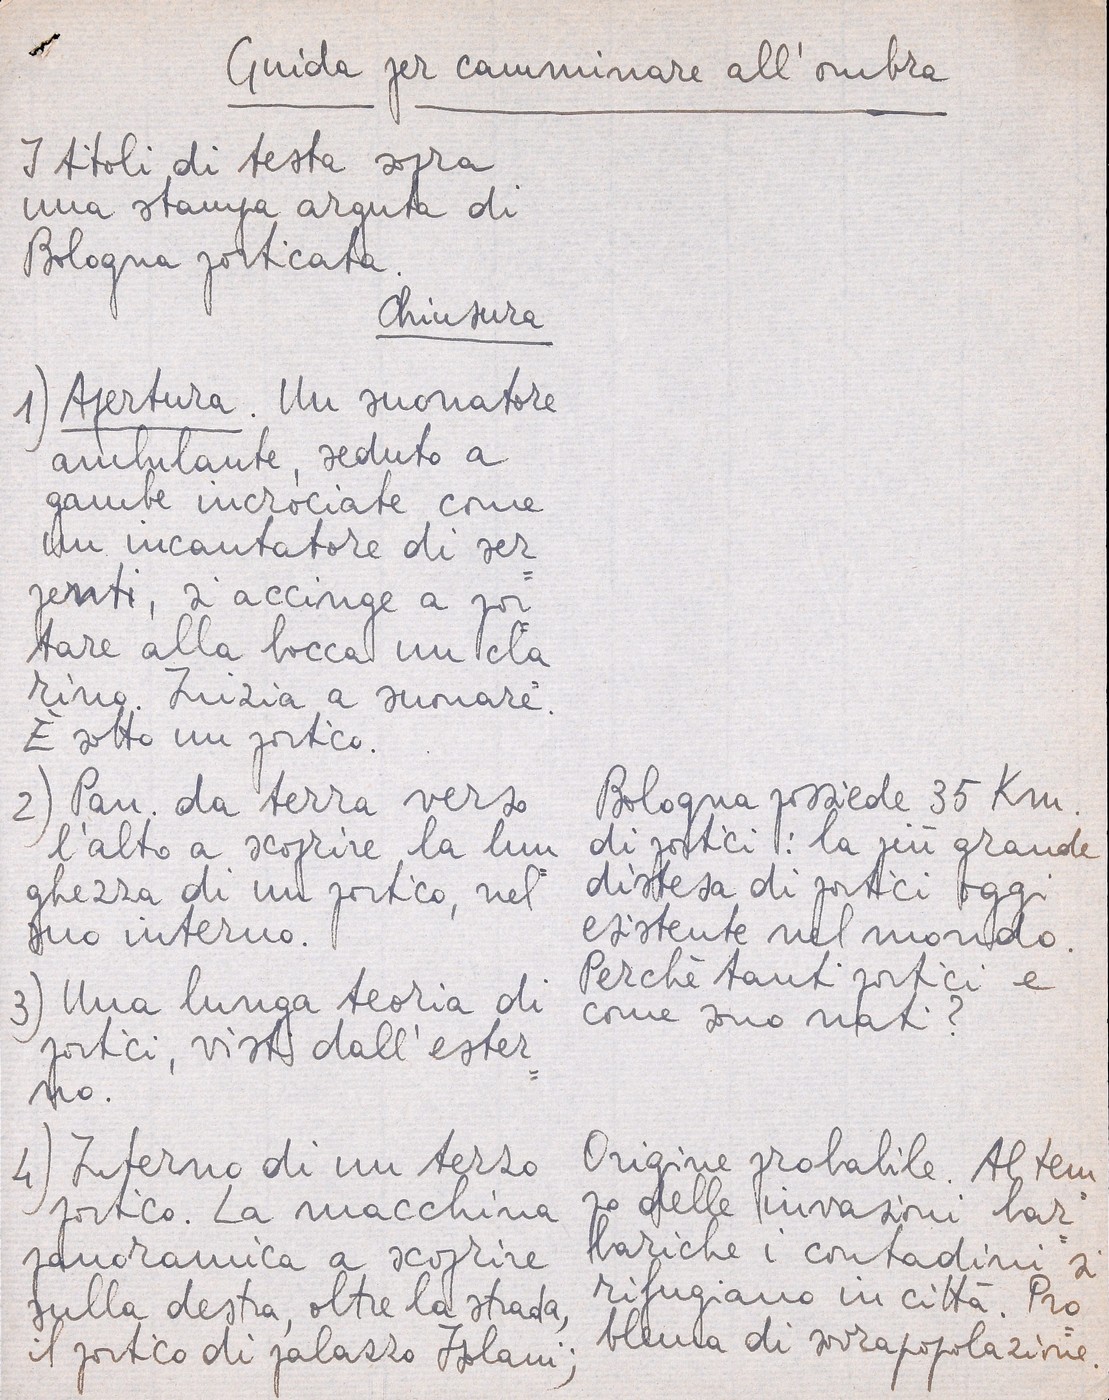 Guida per camminare all'ombra
I titoli di testa sopra
una stampa arguta di
Bologna porticata.
Chiusura
1) Apertura. Un suonatore
ambulante, seduto a
gambe incrociate come
un incantatore di ser=
penti, s'accinge a por=
tare alla bocca un cla=
rino. Inizia a suonare.
È sotto un portico.
2) Pan. da terra verso
l'alto a scoprire la lun=
ghezza di un portico, nel
suo interno.
3) Una lunga teoria di
portici, visti dall'ester=
no.
4) Interno di un terzo
portico. La macchina
panoramica a scoprire
sulla destra, oltre la strada,
il portico di palazzo Isolani;
Bologna possiede 35 Km.
di portici: la più grande
distesa di portici oggi
esistente nel mondo.
Perchè tanti portici e
come sono nati?
Origine probabile. Al tem=
po delle invasioni bar=
bariche i contadini si
rifugiano in città. Pro=
blema di sovrapopolazione.